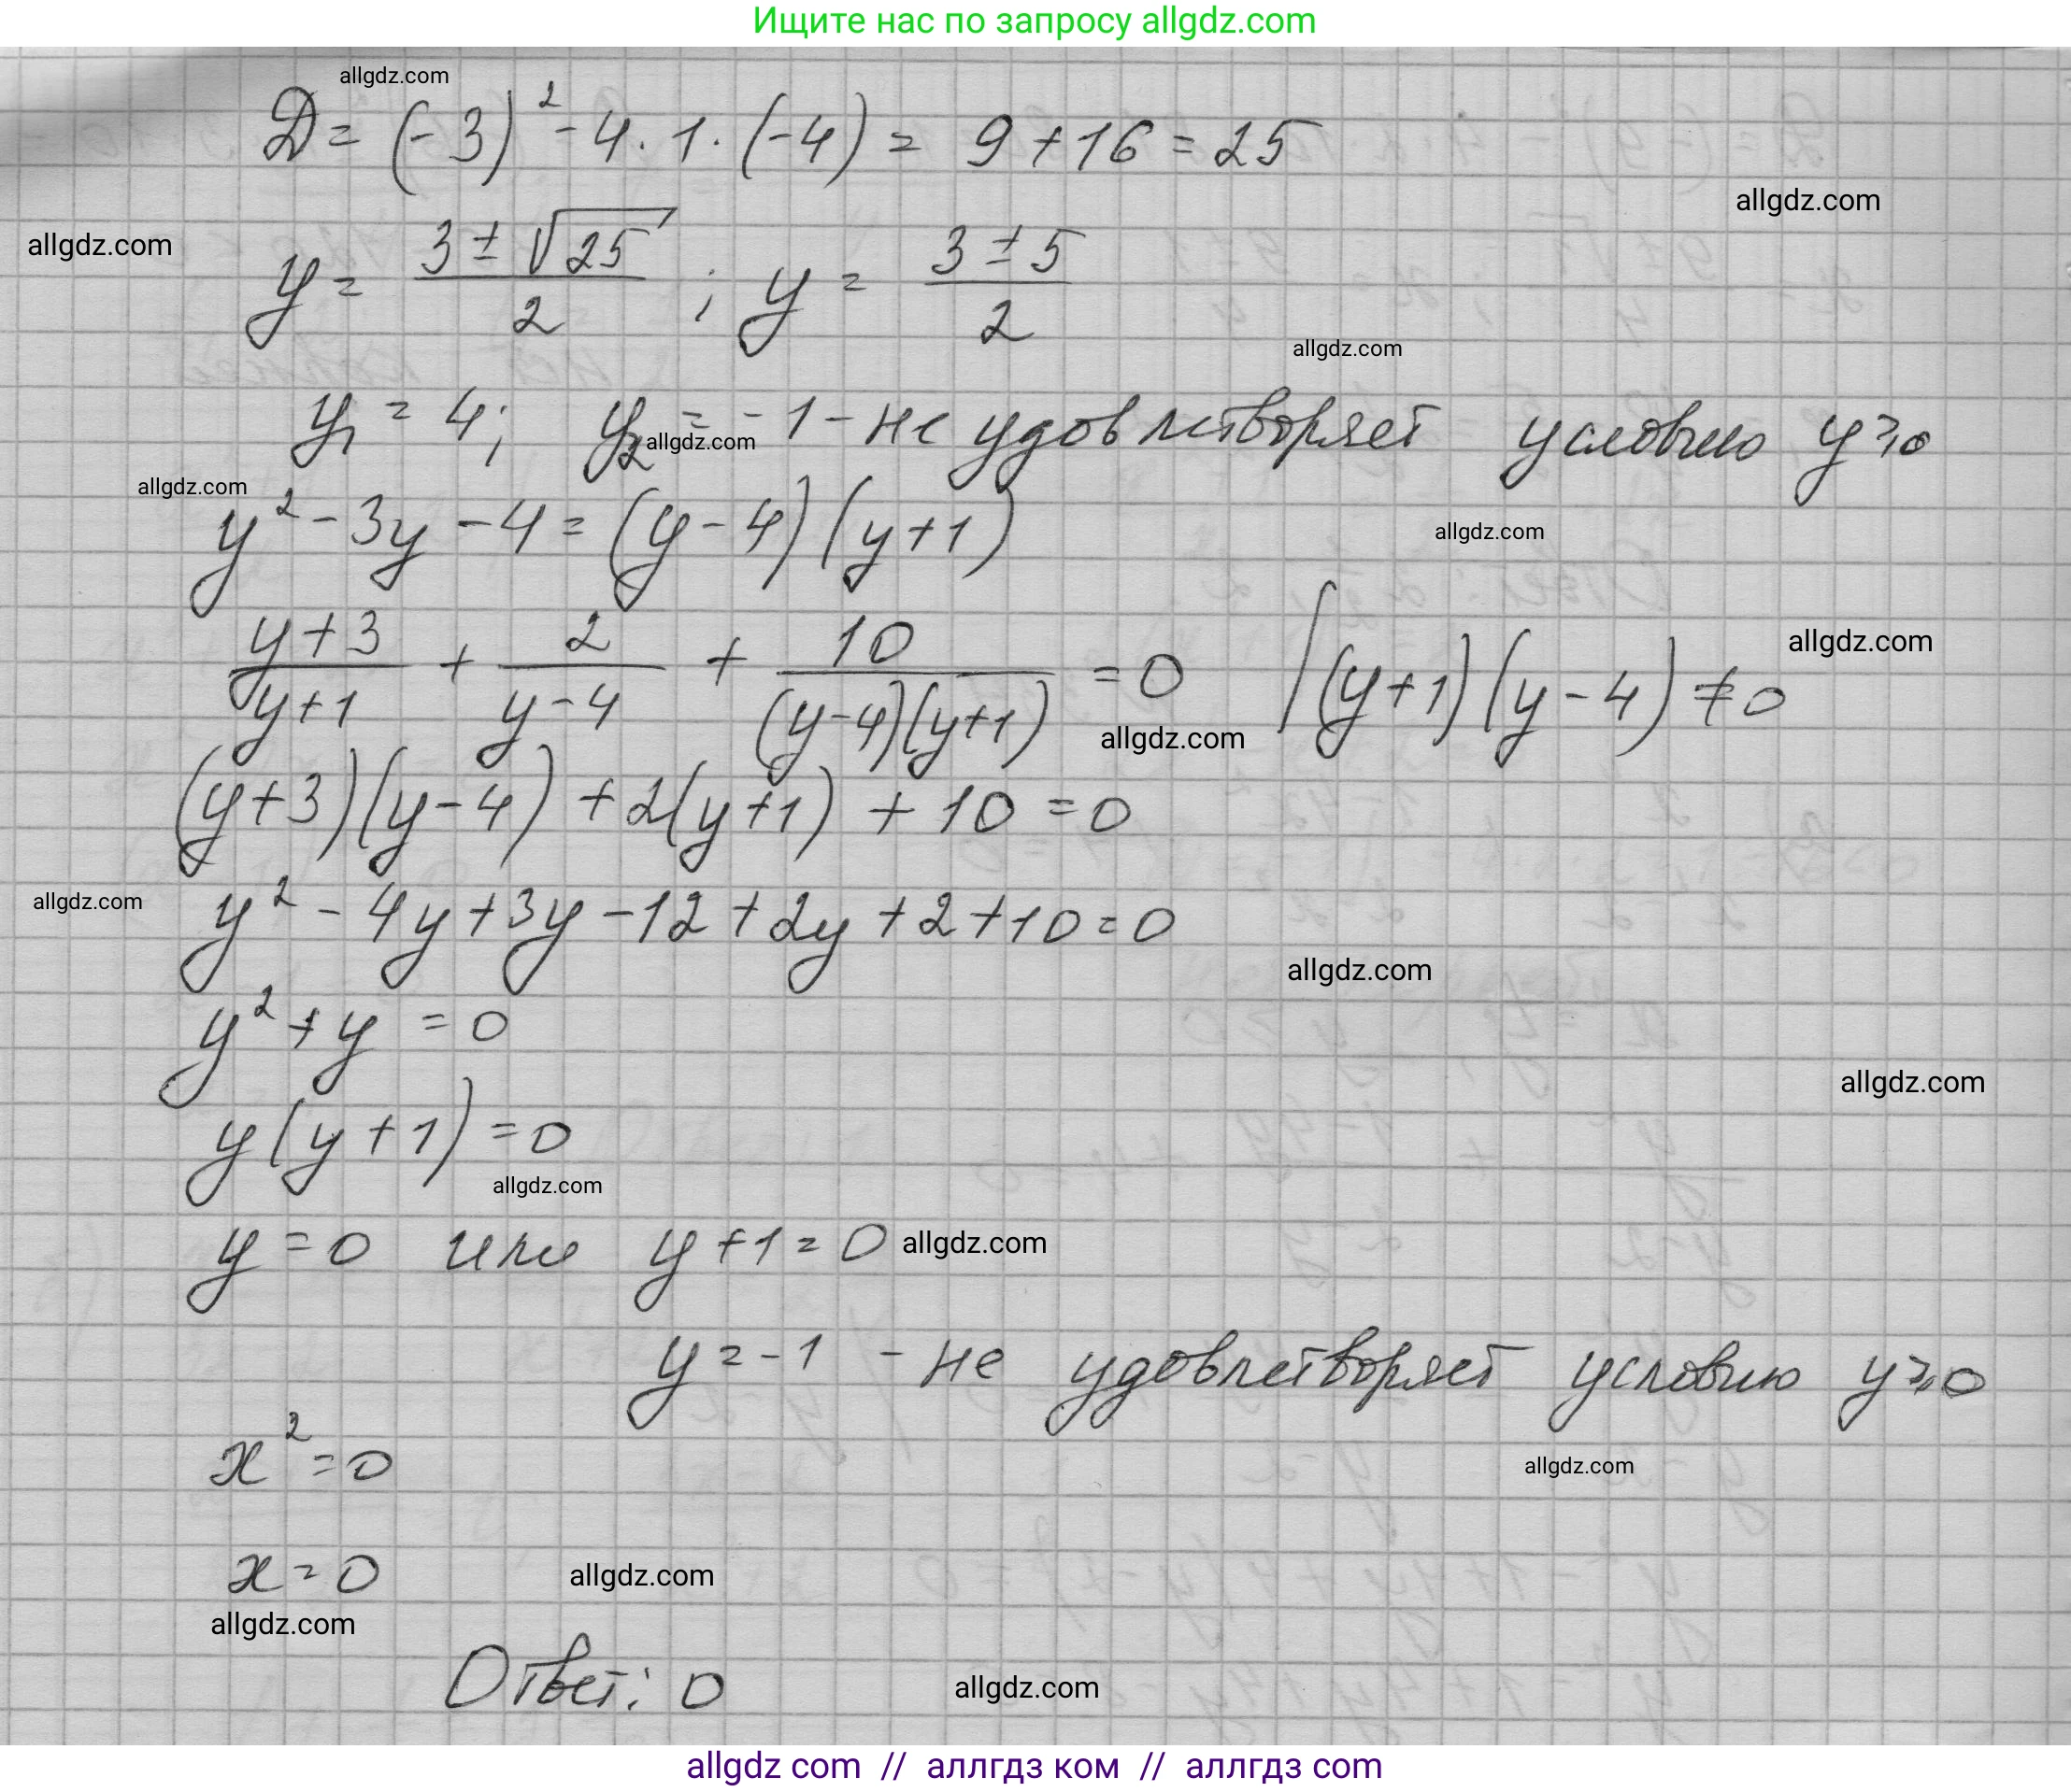 Ищите нас по запросу allgdz.com
allgdz.com
Д = (-3)² - 4 · 1 · (-4) = 9 + 16 = 25
allgdz.com
allgdz.com
y = (3 ± √25)/2 ; y = (3 ± 5)/2
allgdz.com
y₁ = 4; y₂ = -1 - не удовлетворяет условию y ⩾ 0
allgdz.com
allgdz.com
y² - 3y - 4 = (y - 4)(y + 1)
allgdz.com
(y + 3)/(y + 1) + 2/(y - 4) + 10/((y - 4)(y + 1)) = 0 | (y + 1)(y - 4) ≠ 0
allgdz.com
allgdz.com
(y + 3)(y - 4) + 2(y + 1) + 10 = 0
allgdz.com
y² - 4y + 3y - 12 + 2y + 2 + 10 = 0
allgdz.com
y² + y = 0
allgdz.com
y(y + 1) = 0
allgdz.com
y = 0 или y + 1 = 0
allgdz.com
y = -1 - не удовлетворяет условию y ⩾ 0
x² = 0
allgdz.com
x = 0
allgdz.com
allgdz.com
Ответ: 0
allgdz.com
allgdz com // аллгдз ком // аллгдз com